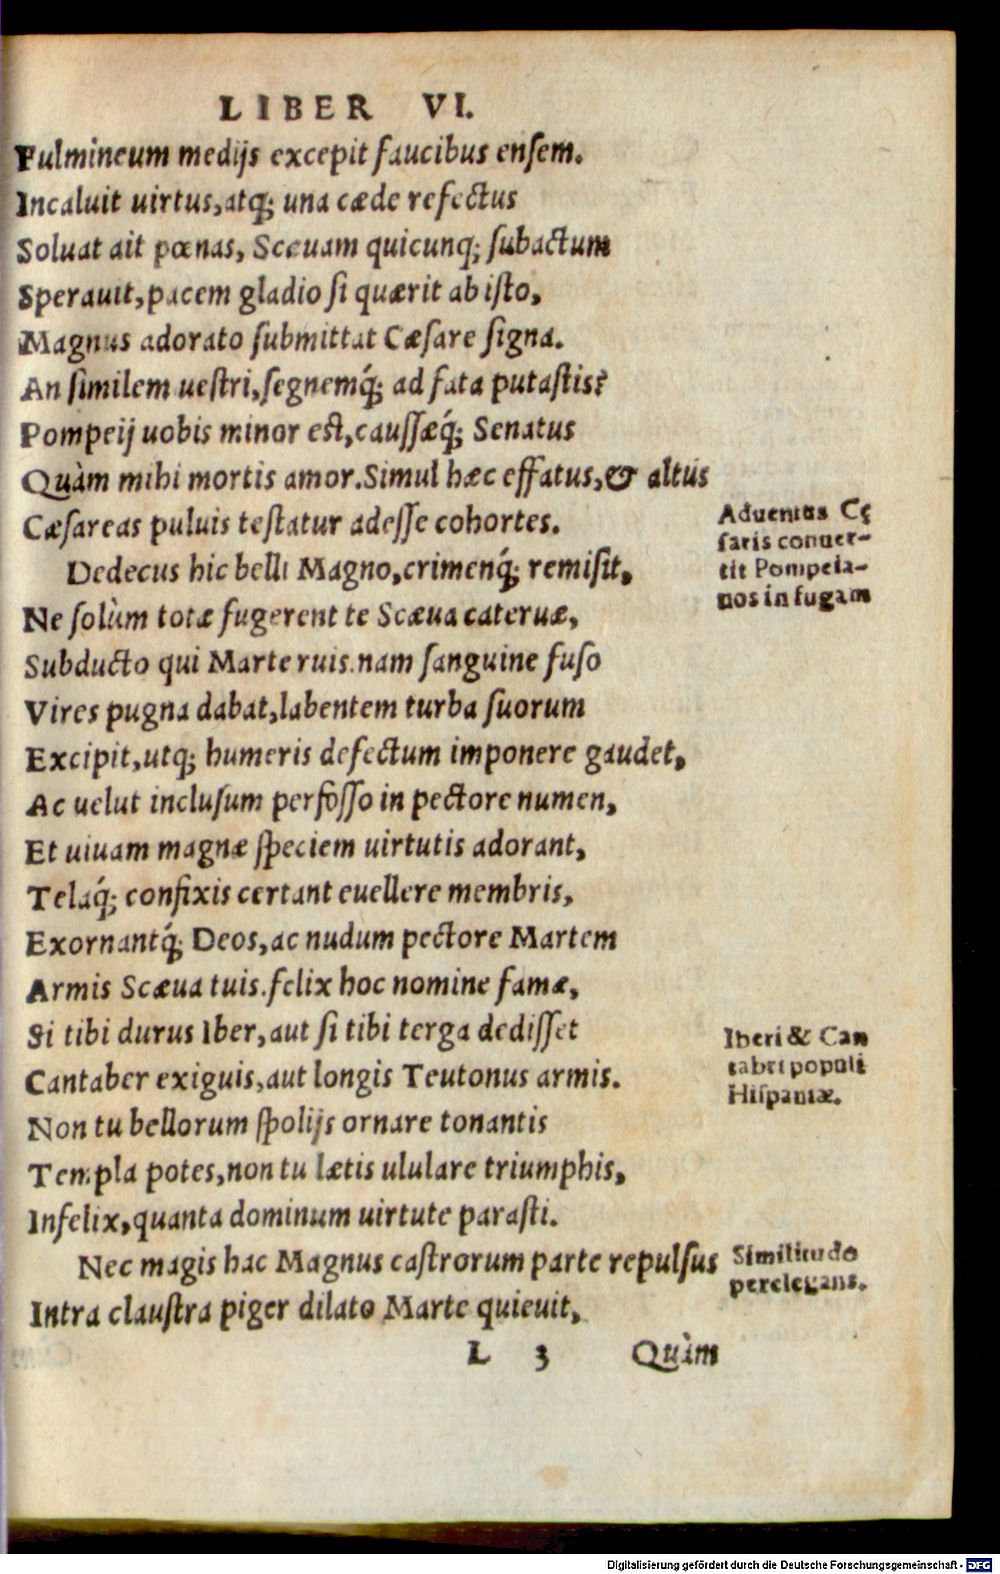 LIBER VI.
Fulmineum medijs excepit faucibus ensem.
Incaluit uirtus, atq; una cæde refectus
Soluat ait pœnas, Scæuam quicunq; subactum
Sperauit, pacem gladio si quærit ab isto,
Magnus adorato submittat Cæsare signa.
An similem uestri, segnemq́; ad fata putastis?
Pompeij uobis minor est, caussæq́; Senatus
Quàm mihi mortis amor. Simul hæc effatus, & altus
Cæsareas puluis testatur adesse cohortes.
Aduentus Cę
saris conuer-
tit Pompeia-
nos in fugam
Dedecus hic belli Magno, crimenq́; remisit,
Ne solùm totæ fugerent te Scæua cateruæ,
Subducto qui Marte ruis. nam sanguine fuso
Vires pugna dabat, labentem turba suorum
Excipit, utq; humeris defectum imponere gaudet,
Ac uelut inclusum perfosso in pectore numen,
Et uiuam magnæ speciem uirtutis adorant,
Telaq́; confixis certant euellere membris,
Exornantq́; Deos, ac nudum pectore Martem
Armis Scæua tuis. felix hoc nomine famæ,
Si tibi durus Iber, aut si tibi terga dedisset
Cantaber exiguis, aut longis Teutonus armis.
Iberi & Can
tabri populi
Hispaniæ.
Non tu bellorum spolijs ornare tonantis
Templa potes, non tu lætis ululare triumphis,
Infelix, quanta dominum uirtute parasti.
Nec magis hac Magnus castrorum parte repulsus
Intra claustra piger dilato Marte quieuit,
Similitudo
perelegans.
L 3 Quàm
Digitalisierung gefördert durch die Deutsche Forschungsgemeinschaft - DFG